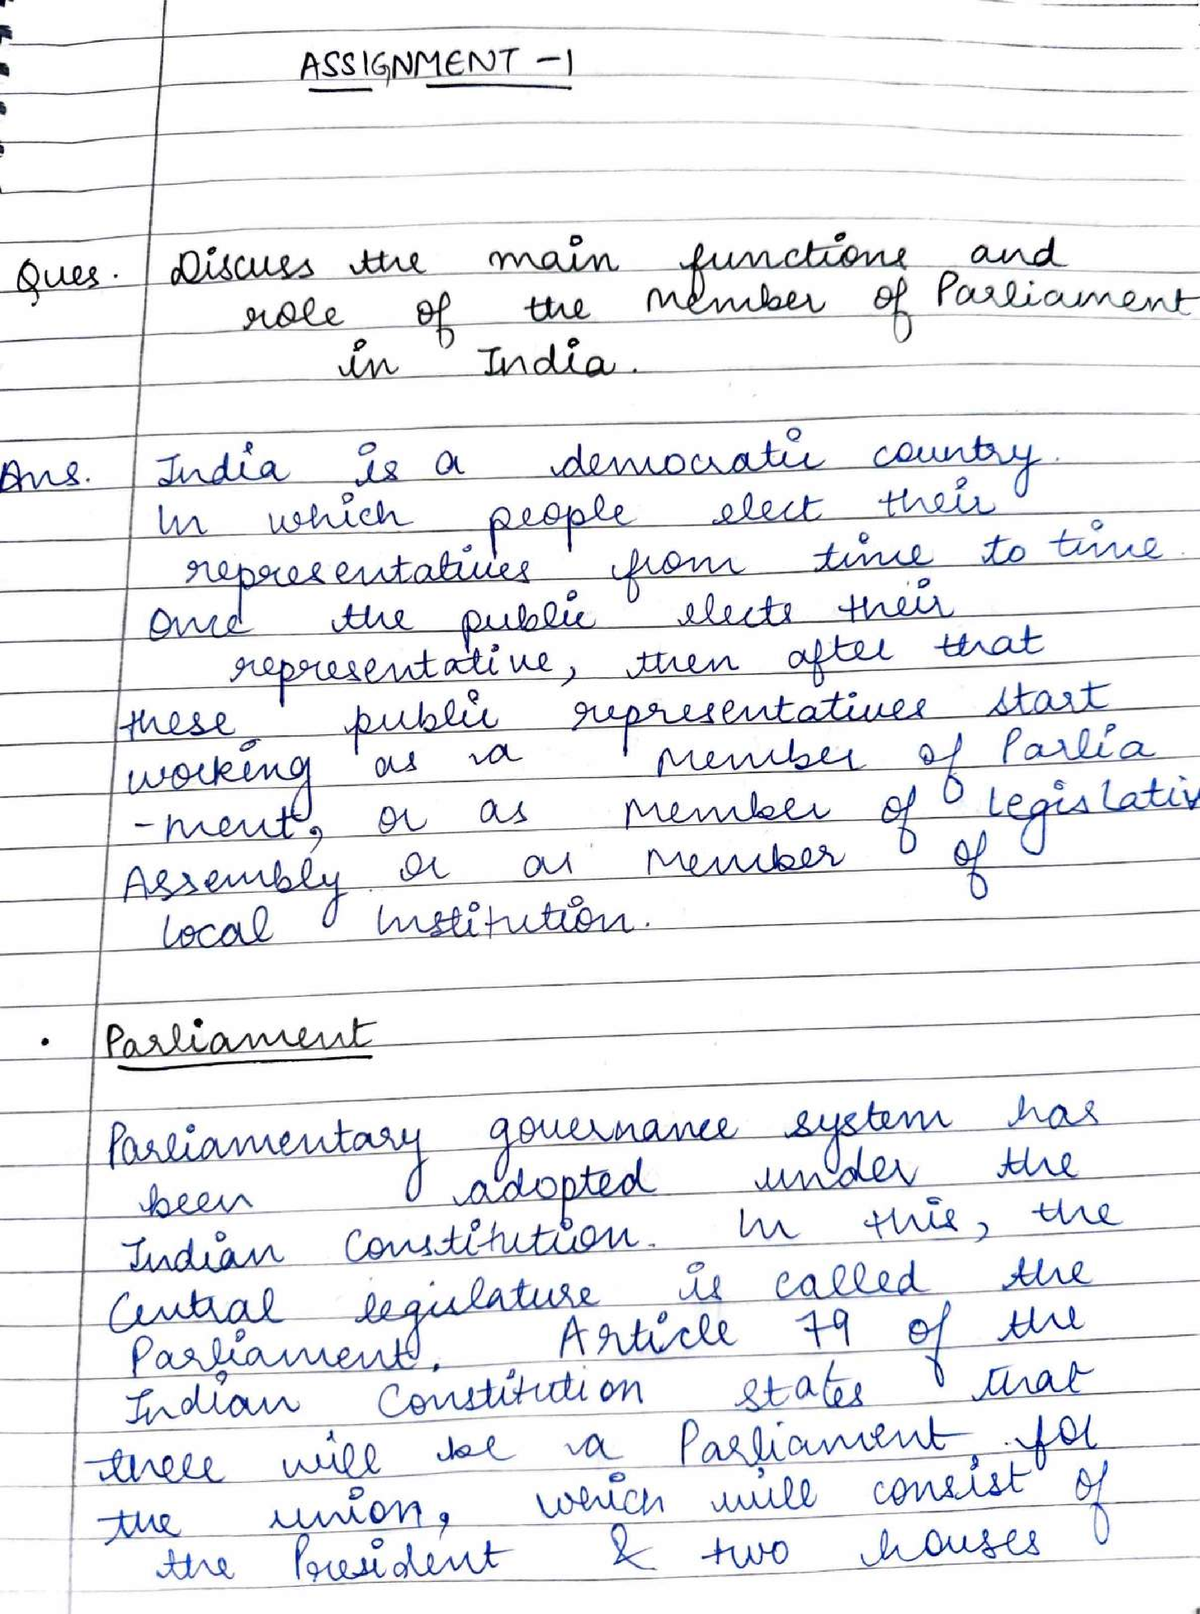 ASSIGNMENT -1
Ques. Discuss the main functions and
role of the Member of Parliament
in India.
Ans. India is a democratic country.
In which people elect their
representatives from time to time.
Once the public elects their
representative, then after that
these public representatives start
working as a Member of Parlia
-ment, or as Member of Legislativ
Assembly or as Member of
Local Institution.
• Parliament
Parliamentary governance system has
been adopted under the
Indian Constitution. In this, the
Central legislature is called the
Parliament. Article 79 of the
Indian Constitution states that
there will be a Parliament for
the union, which will consist of
the President & two houses